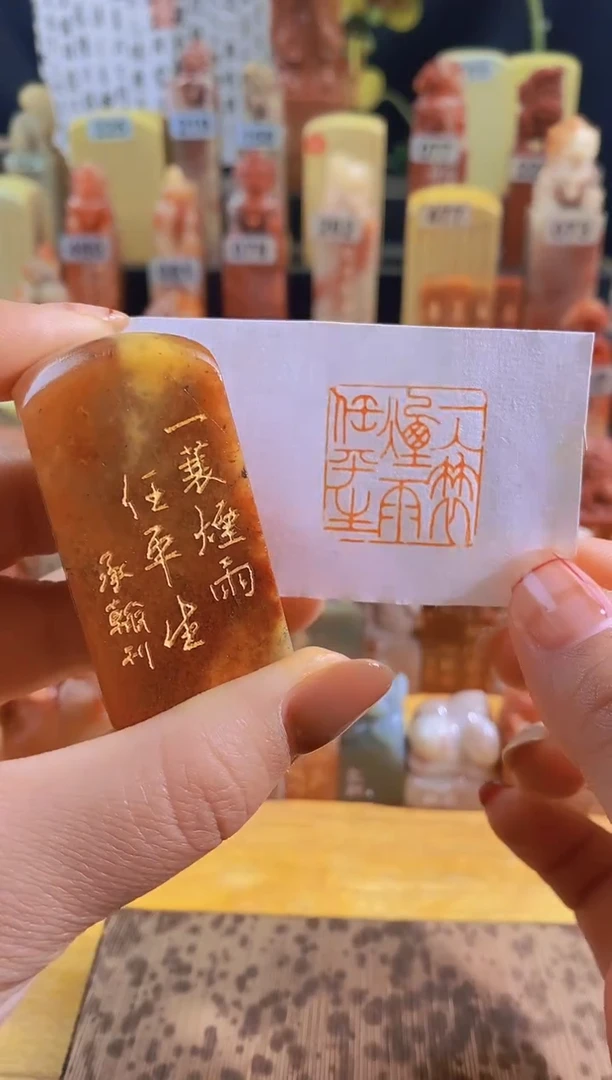 一蓑煙雨
任平生
承翰刊
一蓑
煙雨
任平生
077
079
077
073